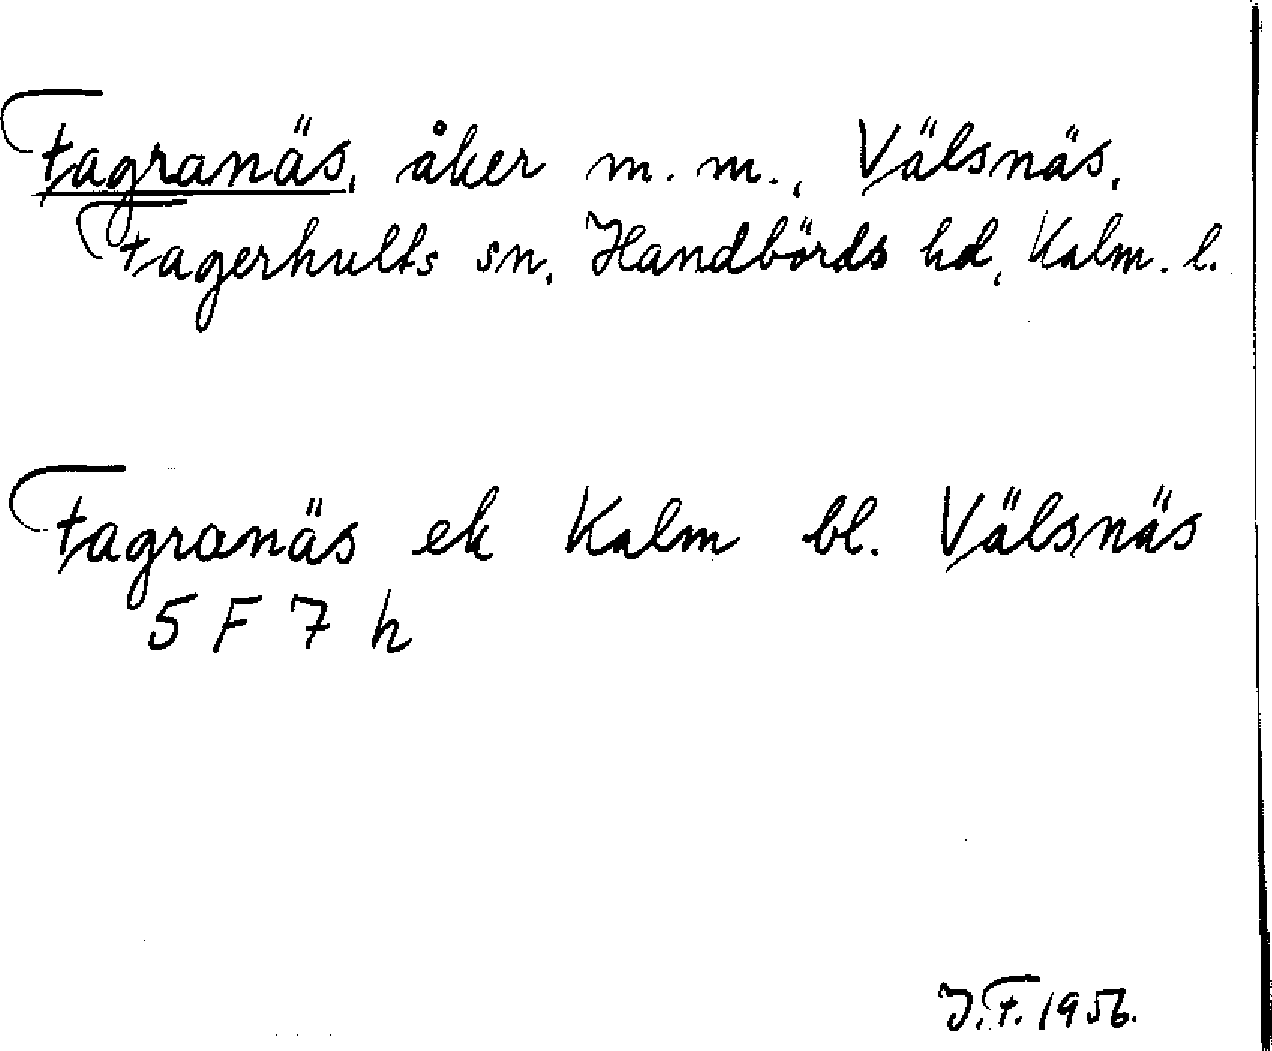 Fagranäs, åker m.m., Välsnäs,
Fagerhults sn, Handbörds hd, Kalm. l.
Fagranäs ek Kalm bl. Välsnäs
5 F 7 h
J.F. 1956.